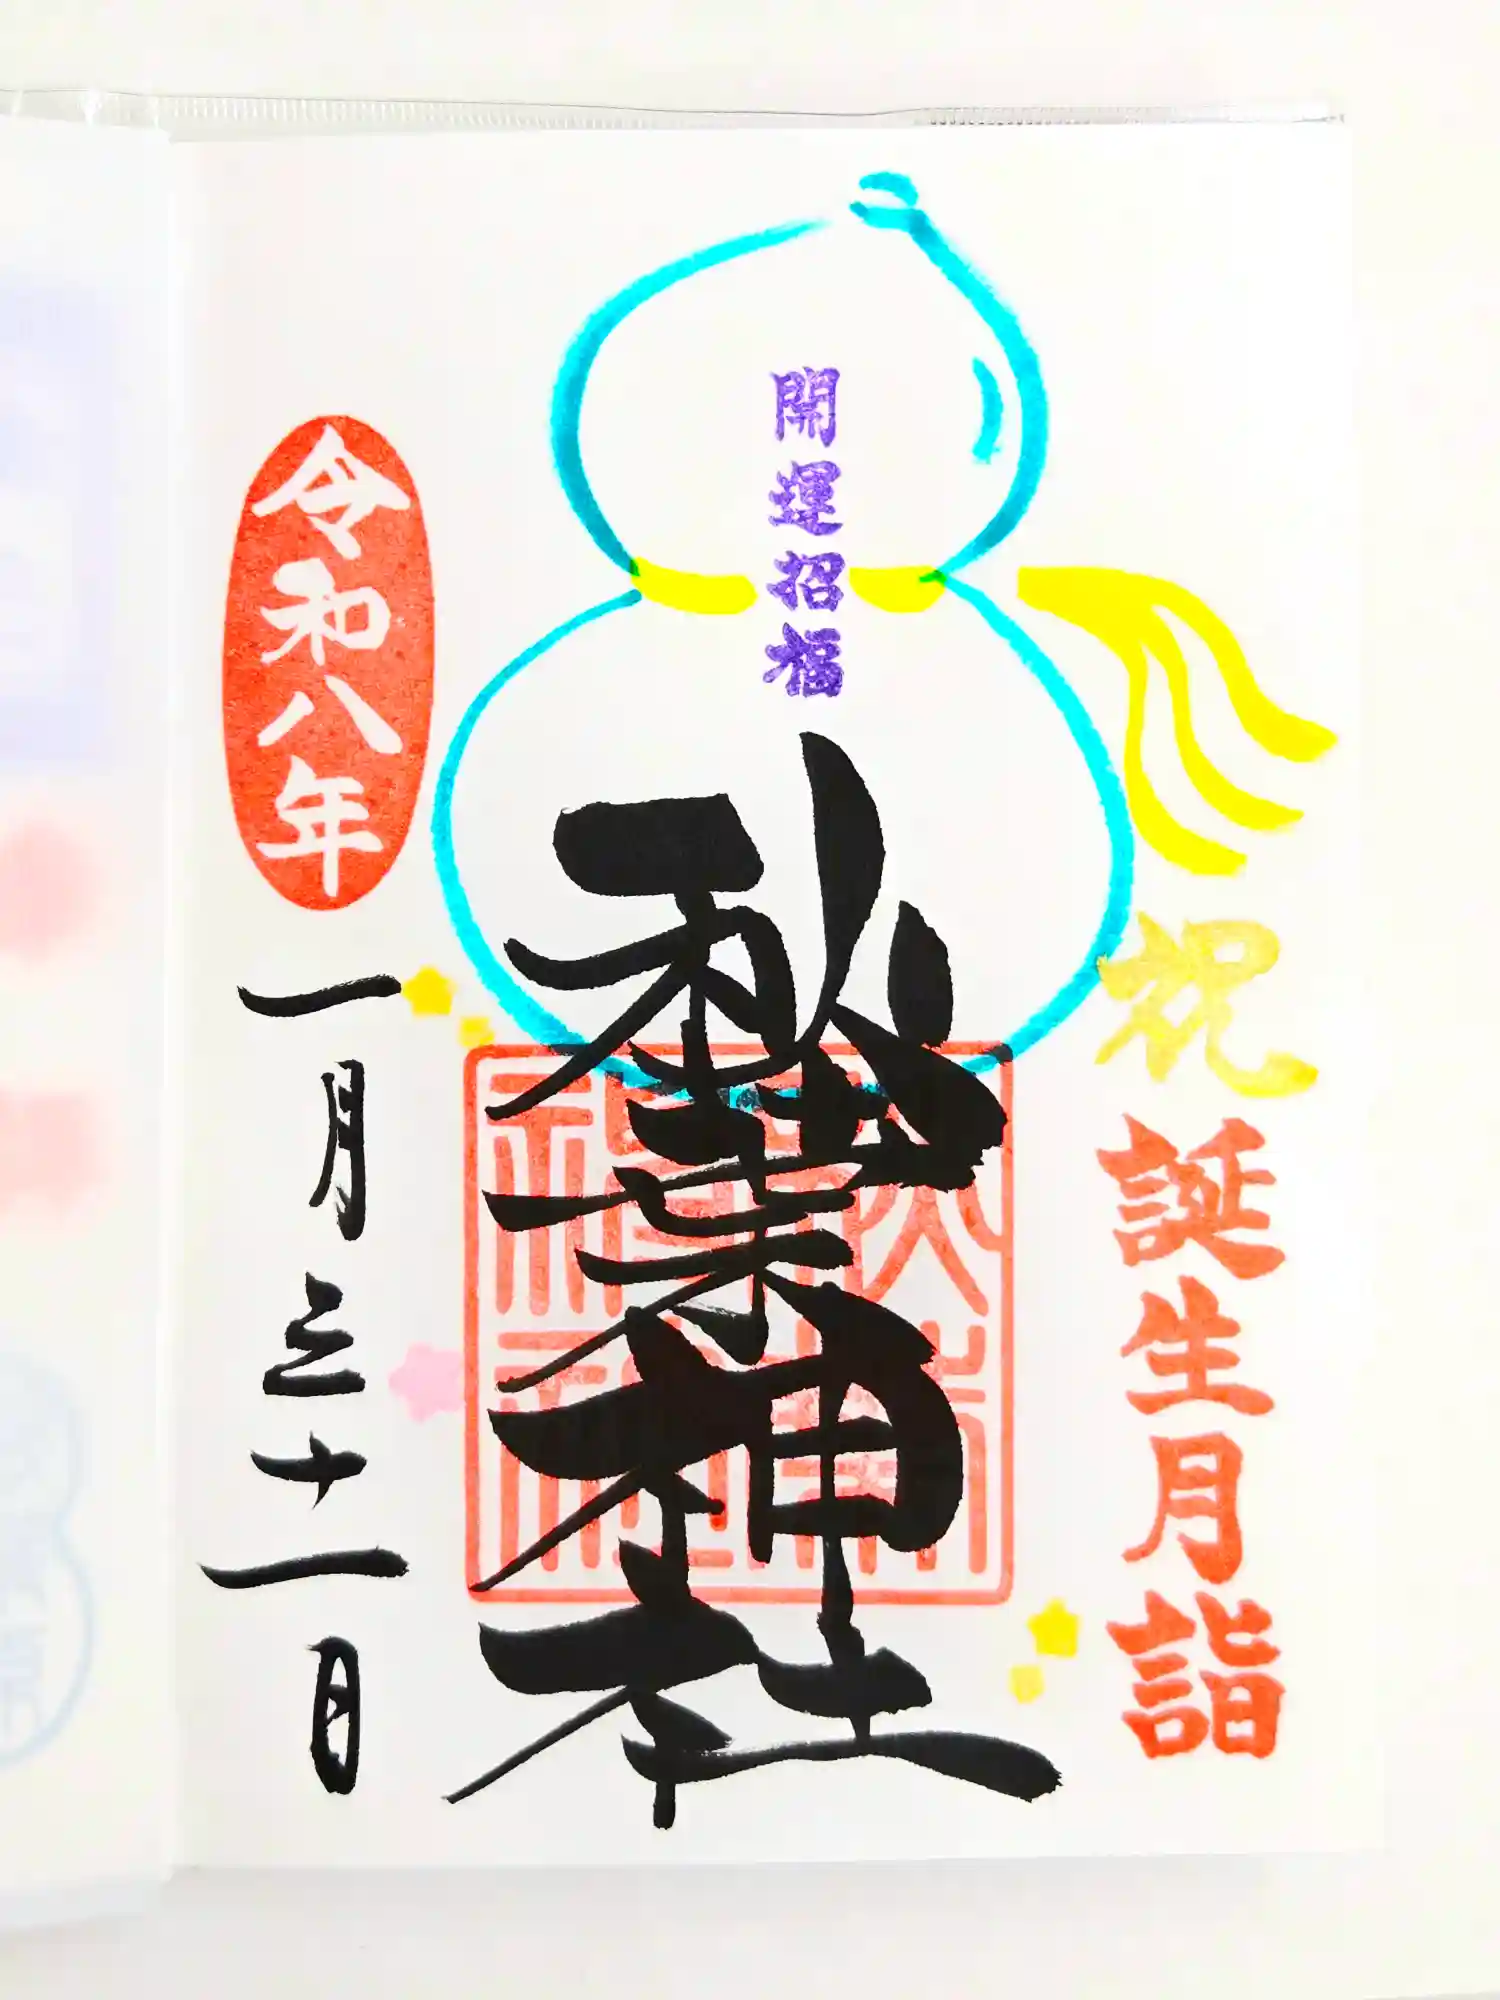 祝
誕生月詣
開運招福
秋葉神社
令和八年
一月三十一日